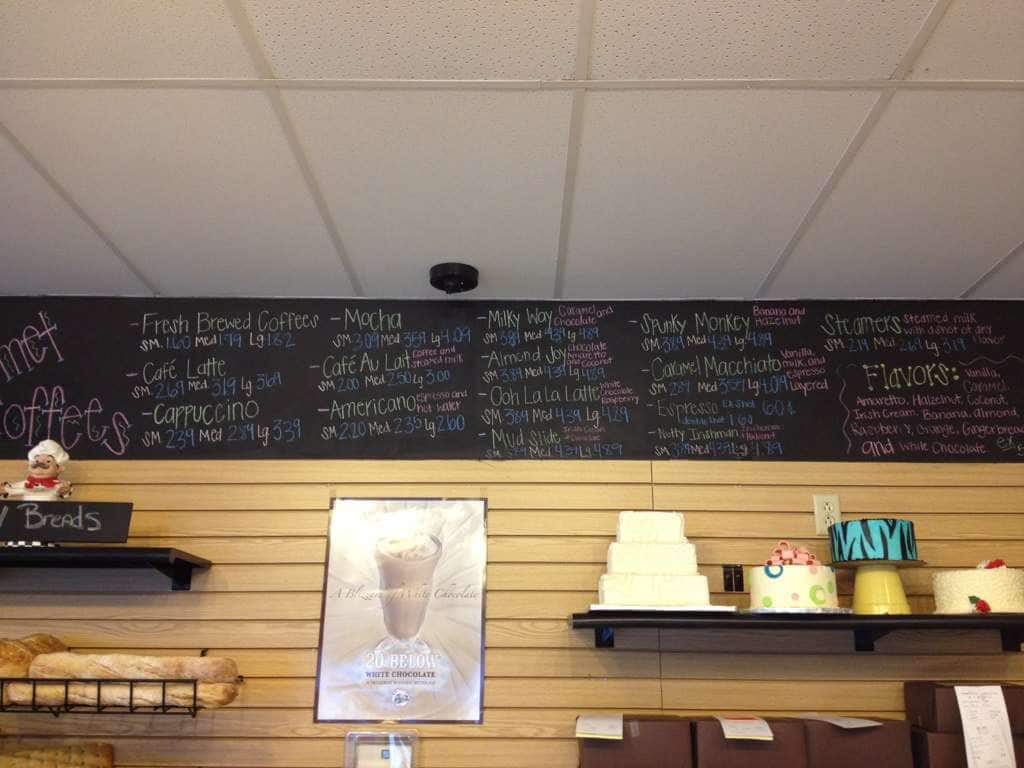 offees
-Fresh Brewed Coffees
SM. 1.60 Med 1.79 Lg 1.82
-Café Latte
SM 2.69 Med 3.19 Lg 3.69
-Cappuccino
SM 2.39 Med 2.89 Lg 3.39
-Mocha
SM 3.09 Med 3.59 Lg 4.09
-Café Au Lait Coffee and
steamed milk
SM 2.00 Med 2.50 Lg 3.00
-Americano espresso and
hot water
SM 2.10 Med 2.35 Lg 2.60
-Milky Way Caramel and
chocolate
SM 3.89 Med 4.39 Lg 4.89
-Almond Joy chocolate
Amaretto
and coconut
SM 3.89 Med 4.39 Lg 4.89
-Ooh La La Latte White
chocolate
Raspberry
SM 3.89 Med 4.39 Lg 4.89
-Mud Slide Irish Cream
SM 3.89 Med 4.39 Lg 4.89
-Spunky Monkey Banana and
Hazelnut
SM 3.89 Med 4.39 Lg 4.89
-Caramel Macchiato Vanilla,
milk, and
espresso
Layered
Lg 4.09
-Espresso Ex Shot 60¢
double shot 1.60
-Nutty Irishman
SM 3.89 Med 4.39 Lg 4.89
Steamers steamed milk
with a shot of any
flavor
SM 2.19 Med 2.69 Lg 3.19
Flavors: Vanilla,
Caramel
Amaretto, Halzelnut, Coconut,
Irish Cream, Banana, almond,
Raspberry, Orange, Gingerbread
and White Chocolate
Breads
A Blizzard of White Chocolate
20 BELOW
WHITE CHOCOLATE